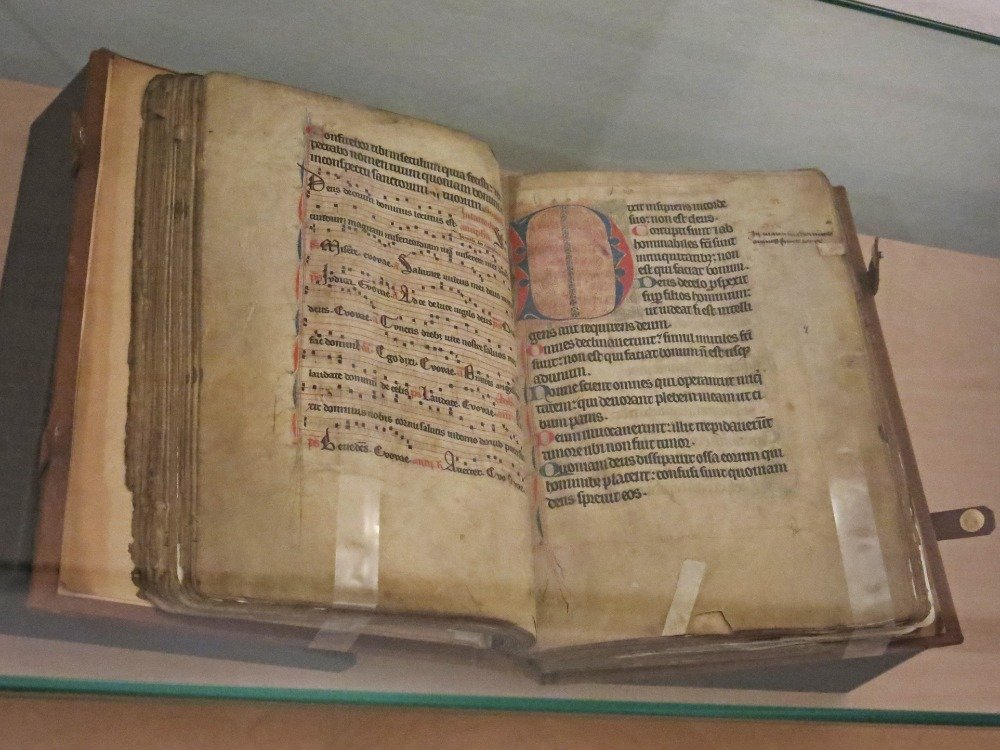 Confitebor tibi in seculum quia fecisti
pectabo nomen tuum quoniam bonum
in conspectu sanctorum tuorum.
Deus deorum dominus locutus est
cundum magnam misericordiam
Misere. Evovae. Salutare vultus mei deus
Iudica. Evovae. Ad te de luce vigilo deus
deus. Evovae. Cunctis diebus vite nostre saluos
fac domine Ego dixi. Evovae.
laudate dominum de celis Laudate. Evovae.
xit dominus nobis cornu salutis in domo dauid
Benedcs. Evovae. Avertet. Evo
Dixit insipiens in corde
suo: non est deus.
Corrupti sunt ⁊ ab
hominabiles fc̄i sunt
in iniquitatibz: non
est qui faciat bonum.
Deus de celo ꝓspexit
sup filios hominum:
ut uideat si est intelli
gens aut requirens deum.
Omnes declinauerunt: simul inutiles fc̄i
sunt: non est qui faciat bonum n̄ est usqꝫ
ad unum.
Nonne scient omnes qui operantur iniq̄
tatem: qui deuorant plebem meam ut ci
bum panis.
Deum inuocauerunt: illic trepidauerūt
timore ubi non fuit timor.
Quoniam deus dissipauit ossa eorum qui
hominibꝫ placent: confusi sunt quoniam
deus spreuit eos.